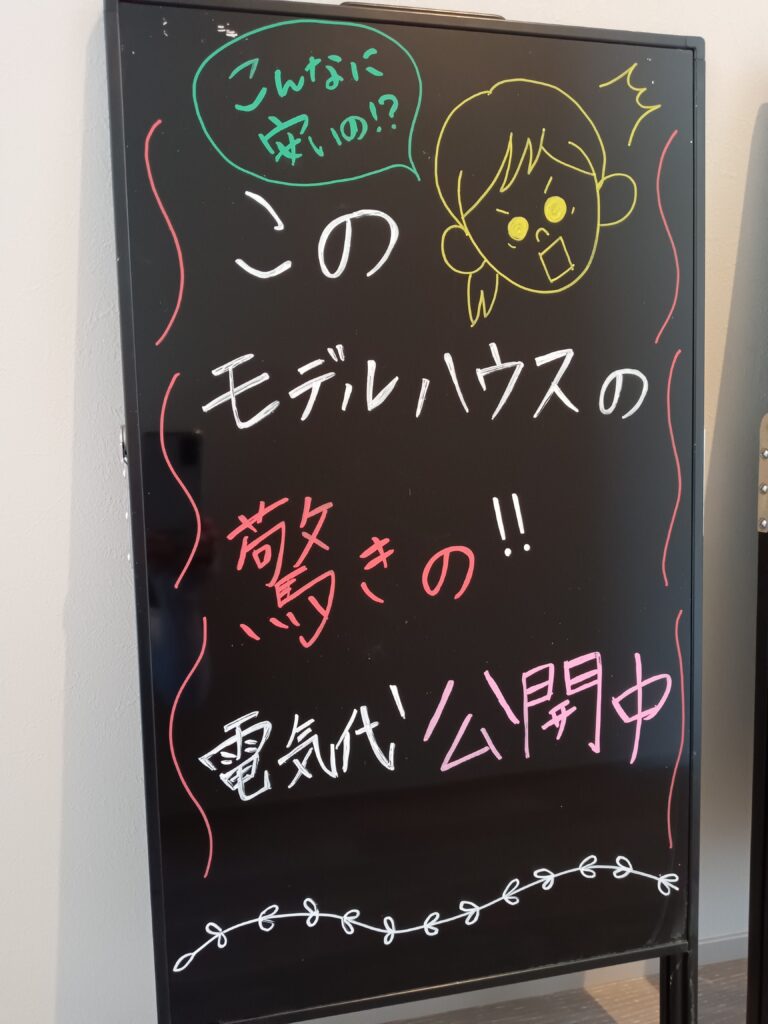 こんなに
安いの!?
この
モデルハウスの
驚きの!!
電気代公開中